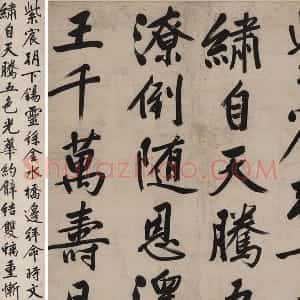 紫宸朝下錫靈絲金水橋邊拜命時文
繡自天騰五色光華約體結雙螭重慚
繡自天騰五
潦倒隨恩澤
王千萬壽